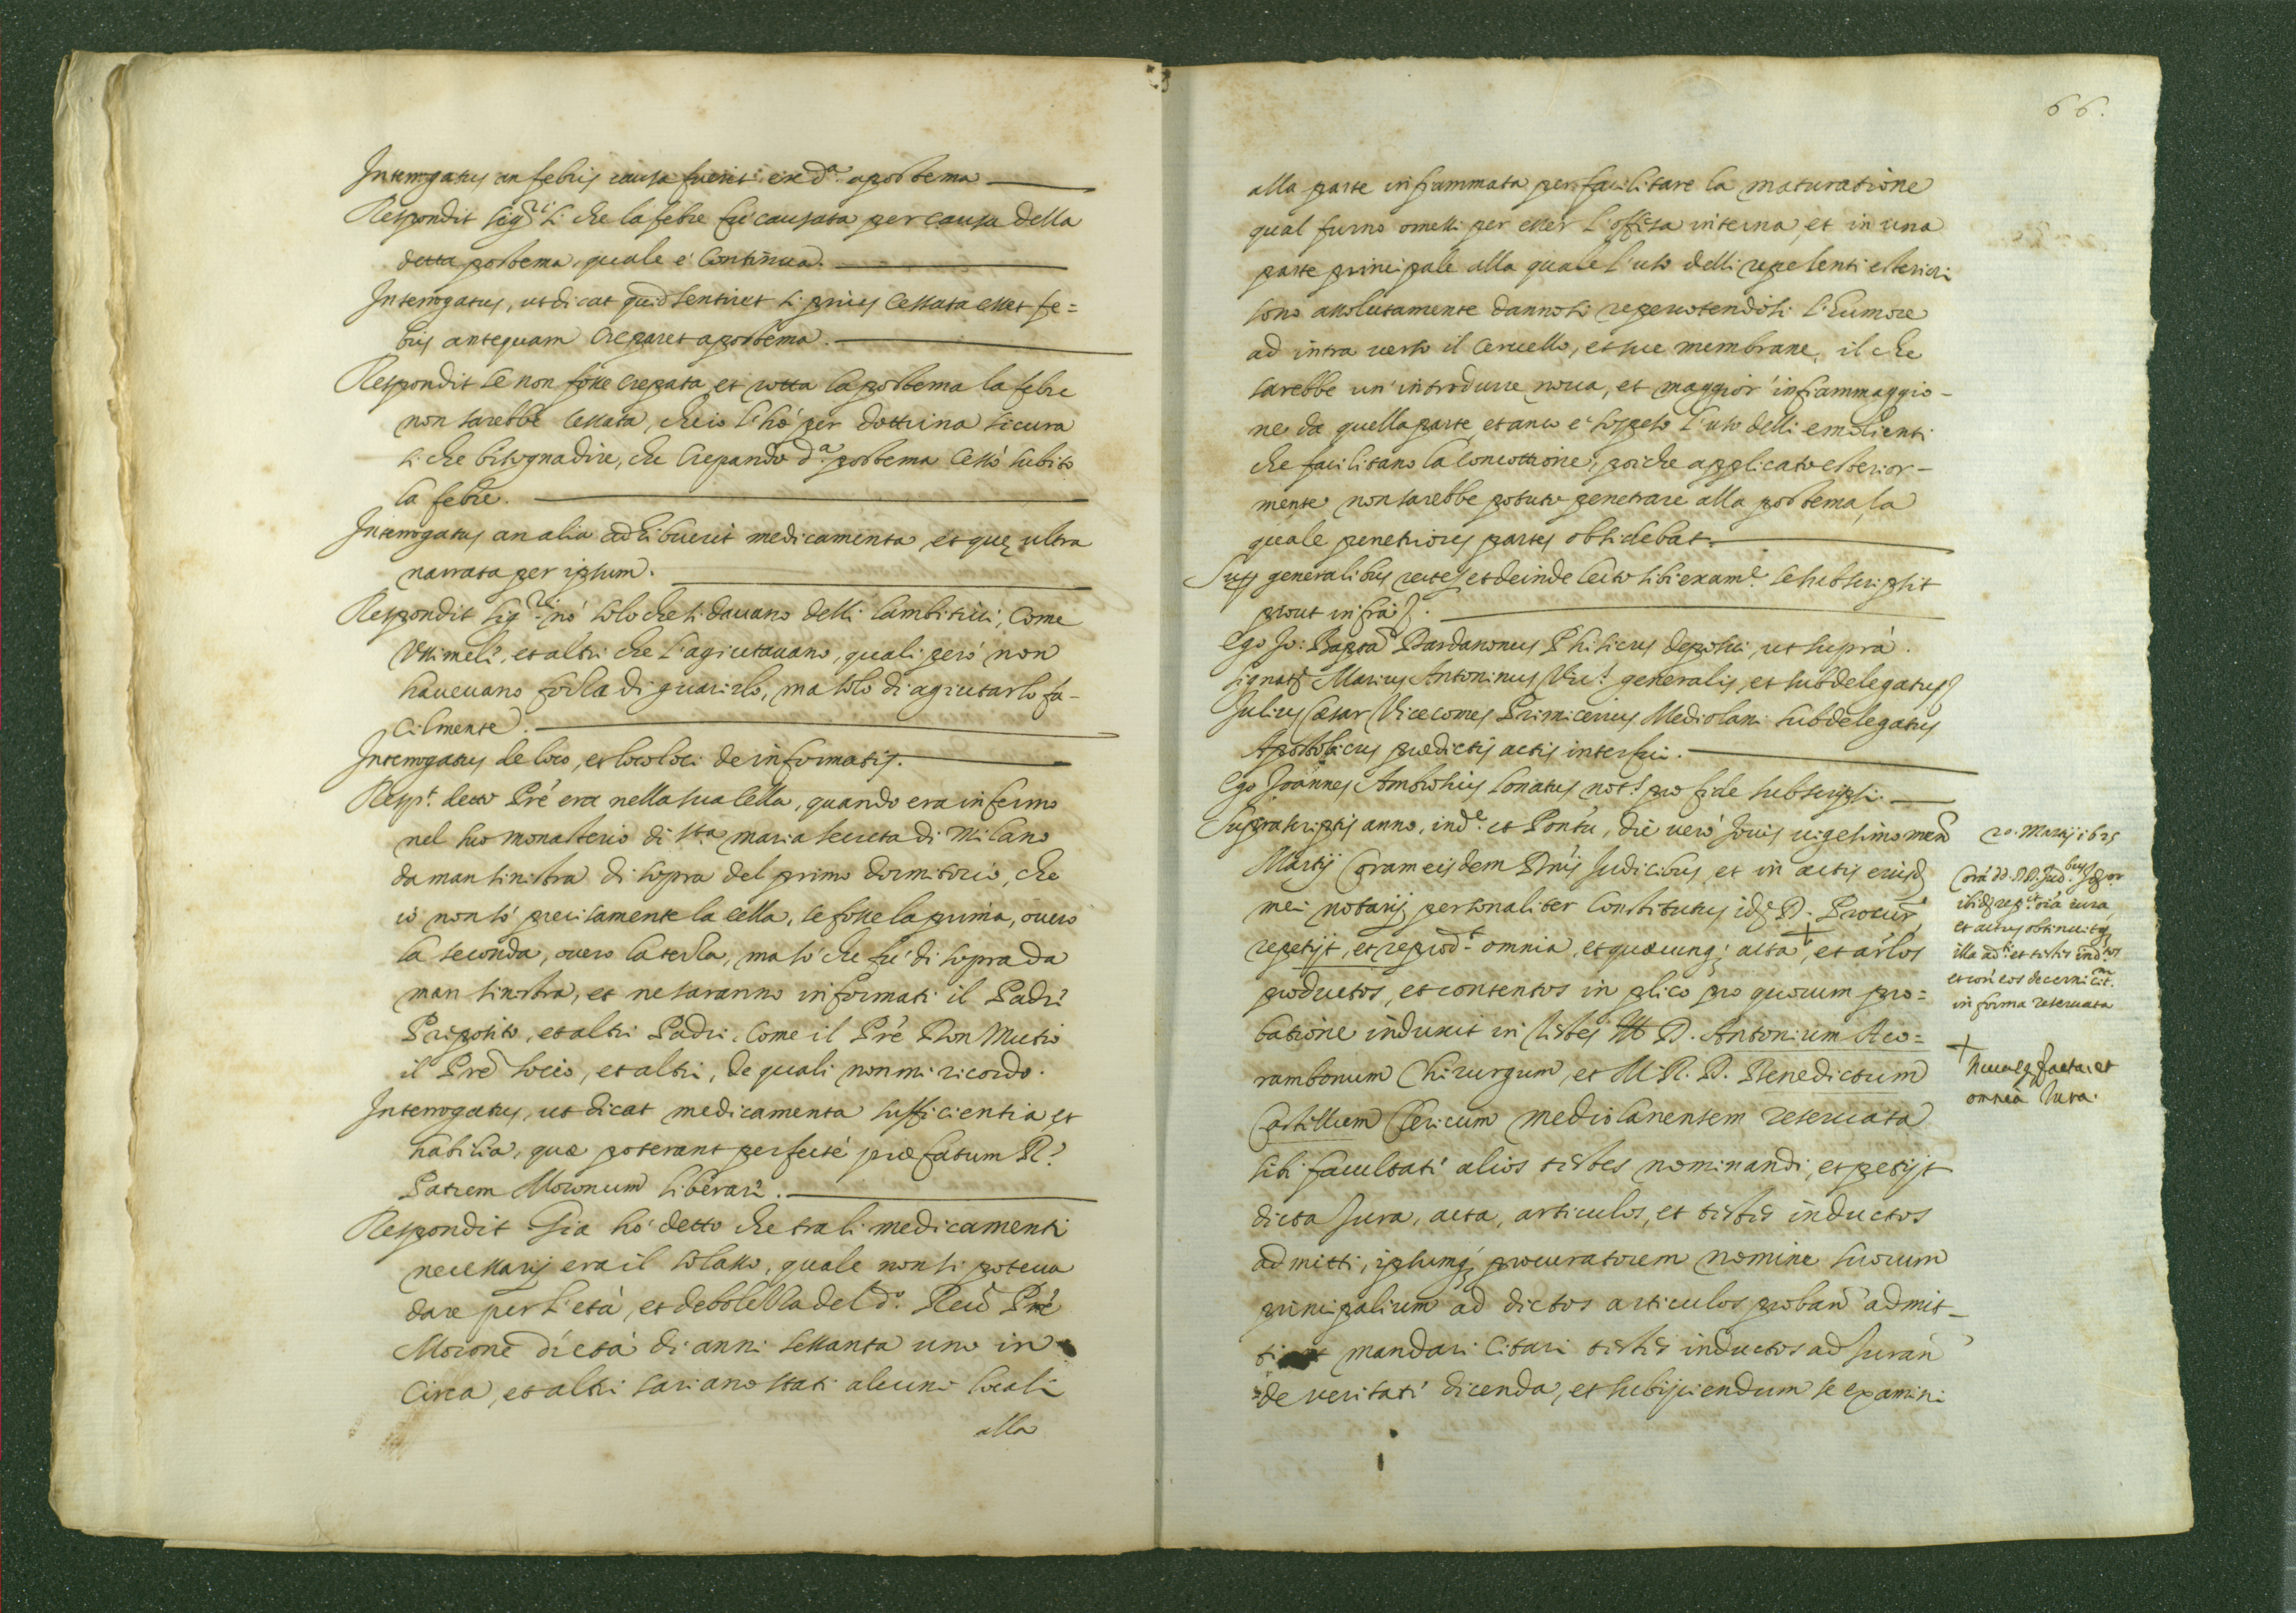 Interrogatus an febris causa fuerit ex d.ª apostema
Respondit sig.ri si che la febre fù causata per causa della
detta postema, quale è Continua.
Interrogatus, ut dicat quid sentiret si prius cessata esset fe=
bris antequam creparet apostema.
Respondit se non fosse crepata, et rotta la postema la febre
non sarebbe cessata, che io l'hò per dottrina sicura
si che bisogna dire, che crepando d.ª postema cessò subito
la febre.
Interrogatus an alia adhibuerit medicamenta, et quę ultra
narrata per ipsum.
Respondit sig.ri nò solo che si davano delli lambitivi, come
et altri che l'agiutavano, quali però non
havevano forza di guarirlo, ma solo di agiutarlo fa-
cilmente.
Interrogatus de loco, et loco loci de informatis.
Resp.t detto Prè era nella sua cella, quando era infermo
nel suo monasterio di S.ta maria secreta di Milano
da man sinistra di sopra del primo dormitorio, che
iò non sò precisamente la cella, se fosse la prima, overo
la seconda, overo la terza, ma sò che fù di sopra da
man sinistra, et ne saranno informati il Padre
Preposito, et altri Padri, come il Prè Don Mutio
il Prè socio, et altri, de quali non mi ricordo.
Interrogatus, ut dicat medicamenta sufficientia, et
habilia, quæ poterant perfectè præfatum R.
Patrem Moronum liberare.
Respondit Gia hò detto che tra li medicamenti
necessarij era il solasso, quale non si poteva
dare per l'età, et debolezza del d.º Reu.do Prè
Morone d'età di anni settanta uno in
circa, et altri sariano stati alcuni locali
alla
66.
alla parte infiammata per facilitare la maturatione
qual furno omessi per esser l'offesa interna, et in una
parte principale alla quale l'uso delli repelenti esteriori
sono assolutamente dannosi repercotendosi l'humore
ad intra verso il cervello, et sue membrane, il che
sarebbe un' introdurre nova, et maggior' infiammaggio-
ne da quella parte, et anco è sospeto l'uso delli emolienti
che facilitano la concottione, poiche applicato esterior-
mente non sarebbe potuto penetrare alla postema, la
quale penetriores partes obsidebat.
Super generalibus recte, et deinde lecto sibi exam.e se subscripsit
prout infra.
Ego Jo: Bapta Dardanonus Phisicus deposui, ut suprà.
signat. Marius Antoninus Vic.s generalis, et subdelegatus
Julius Cæsar Vicecomes Primicerius Mediolani subdelegatus
Apostolicus prædictis actis interfui.
Ego Joannes Ambrosius not.s pro fide subscripsi.
Suprascriptis anno, ind.e et Pontu, die verò Jovis vigesimo men
Martij Coram eisdem Dnis Judicibus, et in actis eiusd.
mei notarij personaliter constitutus id. D. Procur,
repetijt, et reprod.t omnia, et quæcunq; acta +, et artlos
productos, et contentos in plico pro quorum pro=
batione induxit in testes D. Antonium Aco=
rambonum Chirurgum, et M. R. D. Benedictum
Castillum Clericum mediolanensem reservata
sibi facultati alios testes nominandi, et petijt
dicta Jura, acta, articulos, et testes inductos
admitti, ipsumq; procuratorem nomine suorum
principalium ad dictos articulos proban admit-
ti mandari citari testes inductos ad Juran
de veritati dicenda, et subijciendum se examini
20. Martij 1625
Corà dd. DD. Jud.bus
iura
et actus obtinuitq;
illa ad.ti et testes ind.tos
et con eos decerni cit.
in forma reservata
+
Nunc q; facta, et
omnia Jura.